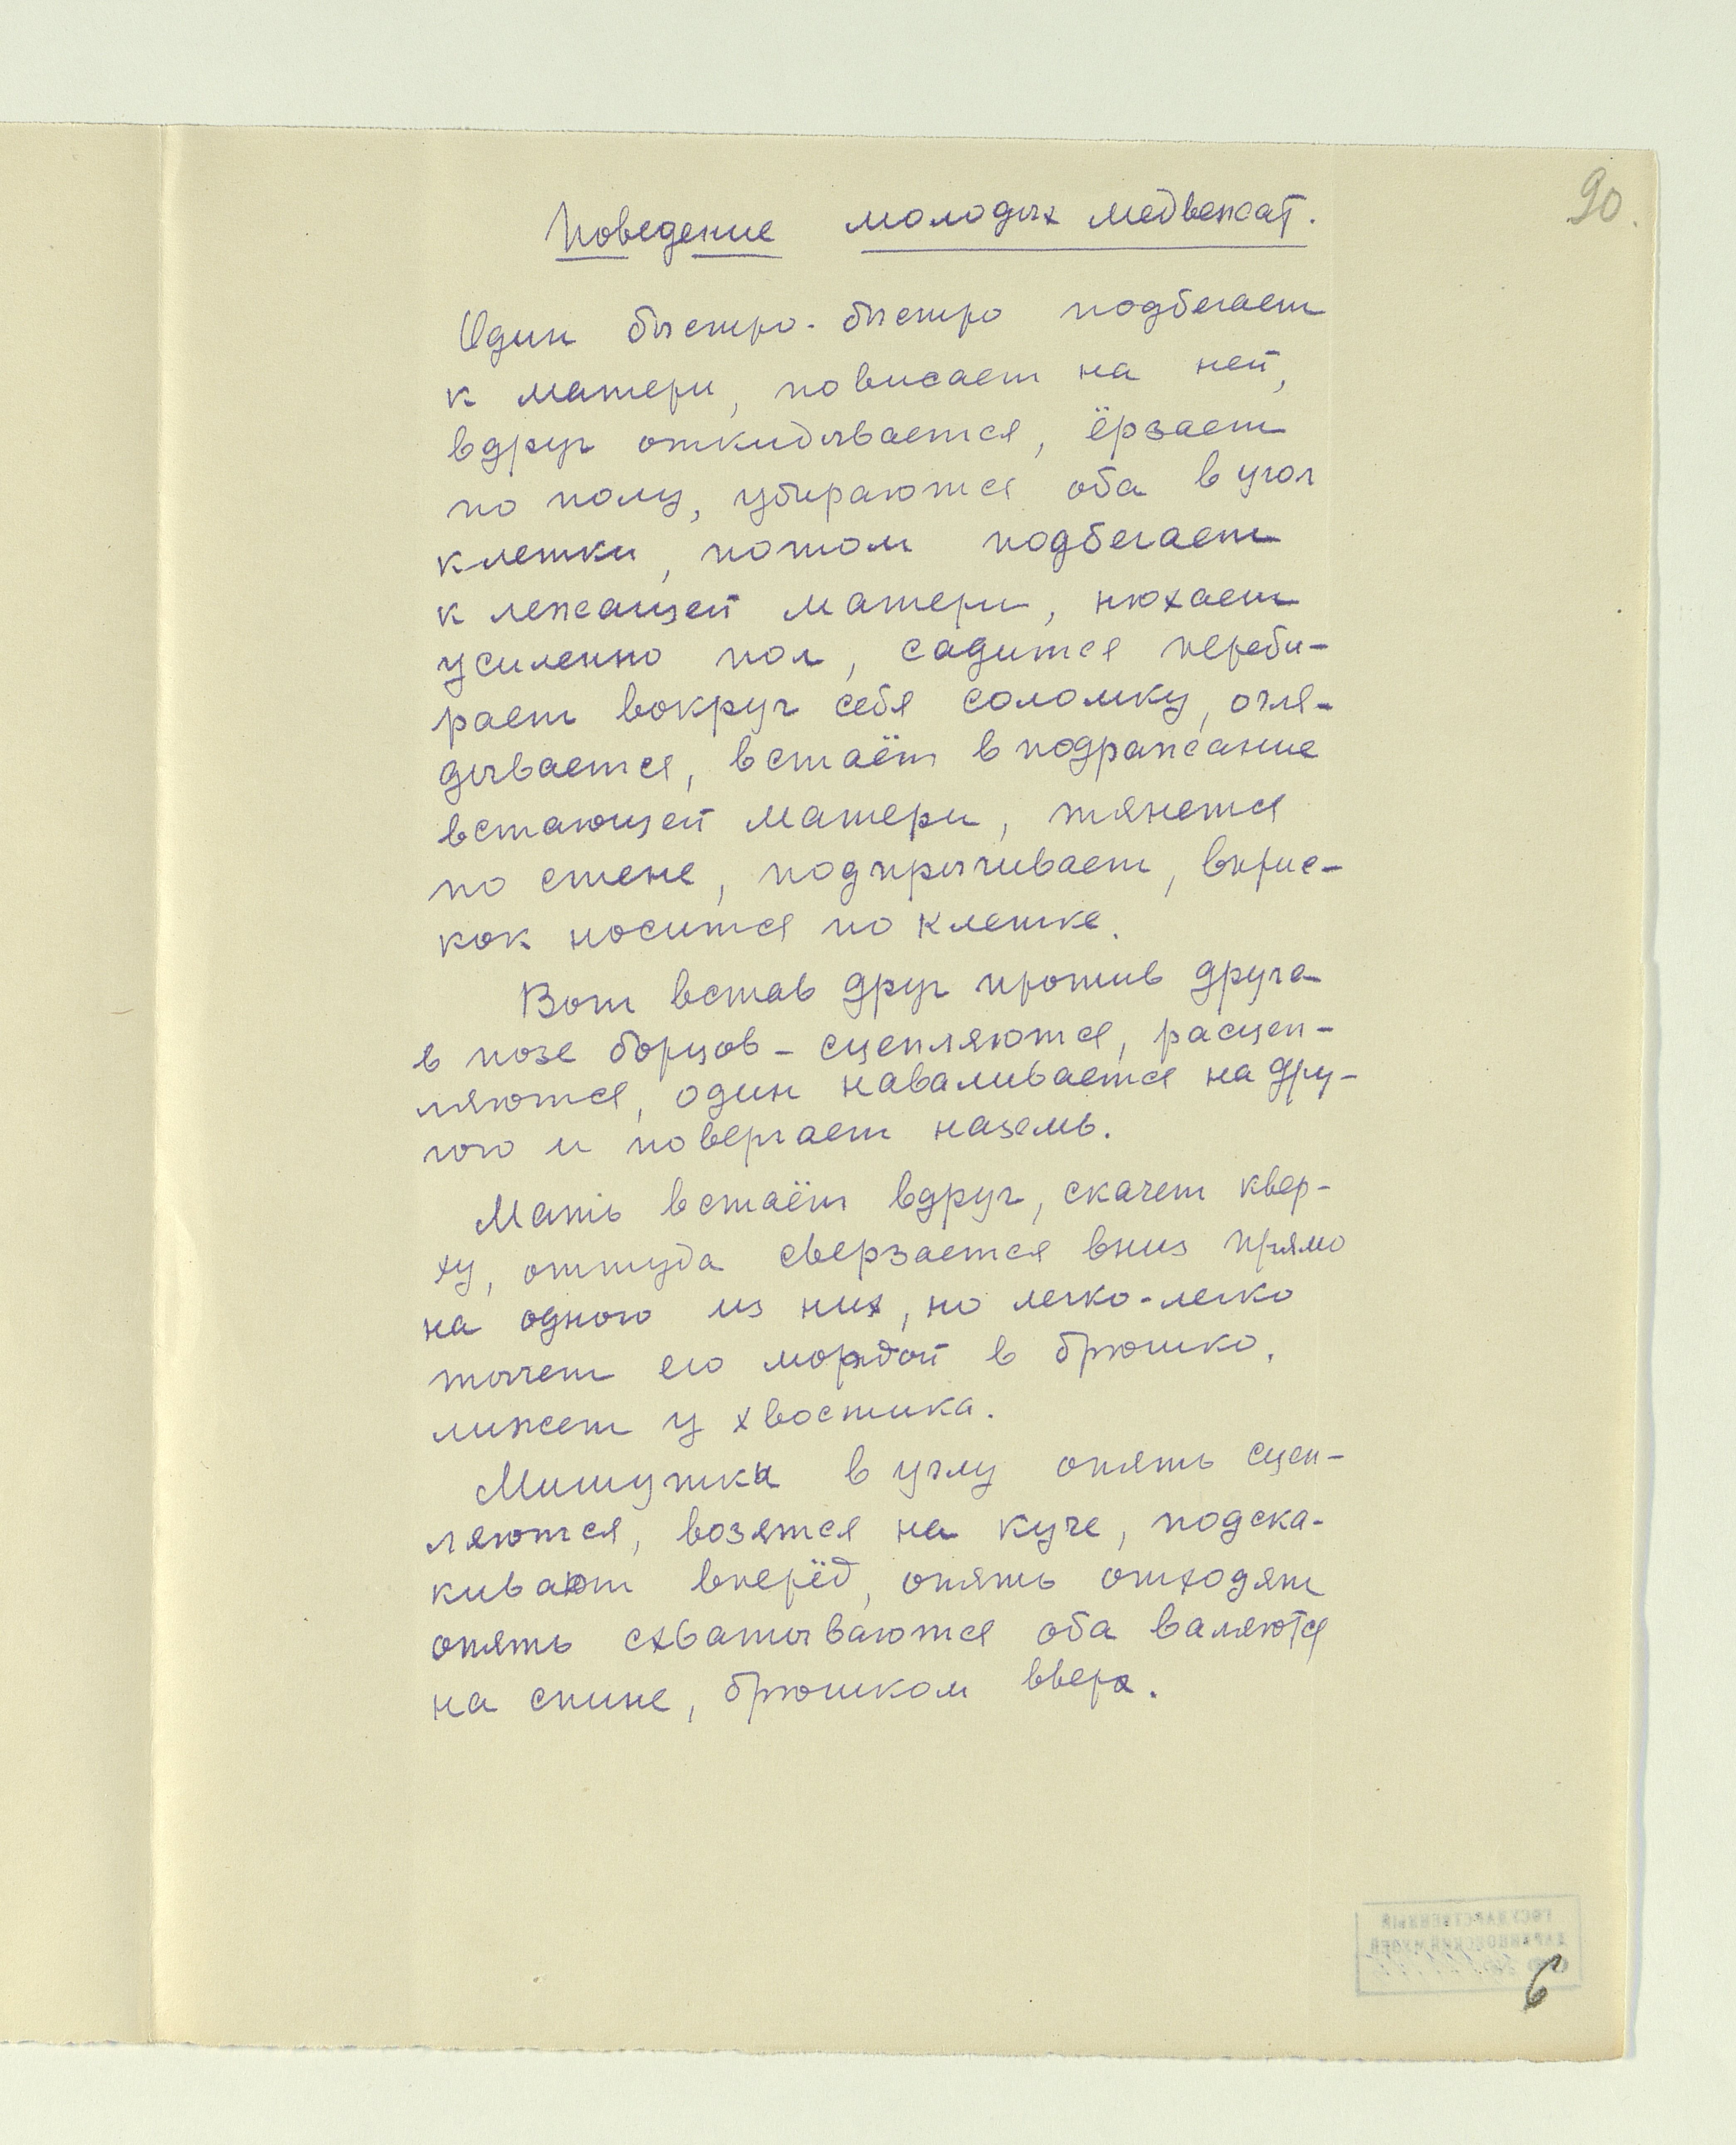 90.
Поведение молодых медвежат.
Один быстро-быстро подбегает
к матери, повисает на ней,
вдруг откидывается, ёрзает
по полу, убираются оба в угол
клетки, потом подбегает
к лежащей матери, нюхает
усиленно пол, садится переби-
рает вокруг себя соломку, огля-
дывается, встаёт в подражание
встающей матери, тянется
по стене, подпрычивает, вприс-
кок носится по клетке.
Вот встав друг против друга
в позе борцов - сцепляются, расцеп-
ляются, один наваливается на дру-
гого и повергает наземь.
Мать встаёт вдруг, скачет квер-
ху, оттуда сверзается вниз прямо
на одного из них, но легко-легко
тычет его мордой в брюшко,
лижет у хвостика.
Мишутки в углу опять сцеп-
ляются, возятся на куче, подска-
кивают вперёд, опять отходят
опять схватываются оба валяются
на спине, брюшком вверх.
ГОСУДАРСТВЕННЫЙ
ДАРВИНОВСКИЙ МУЗЕЙ
6